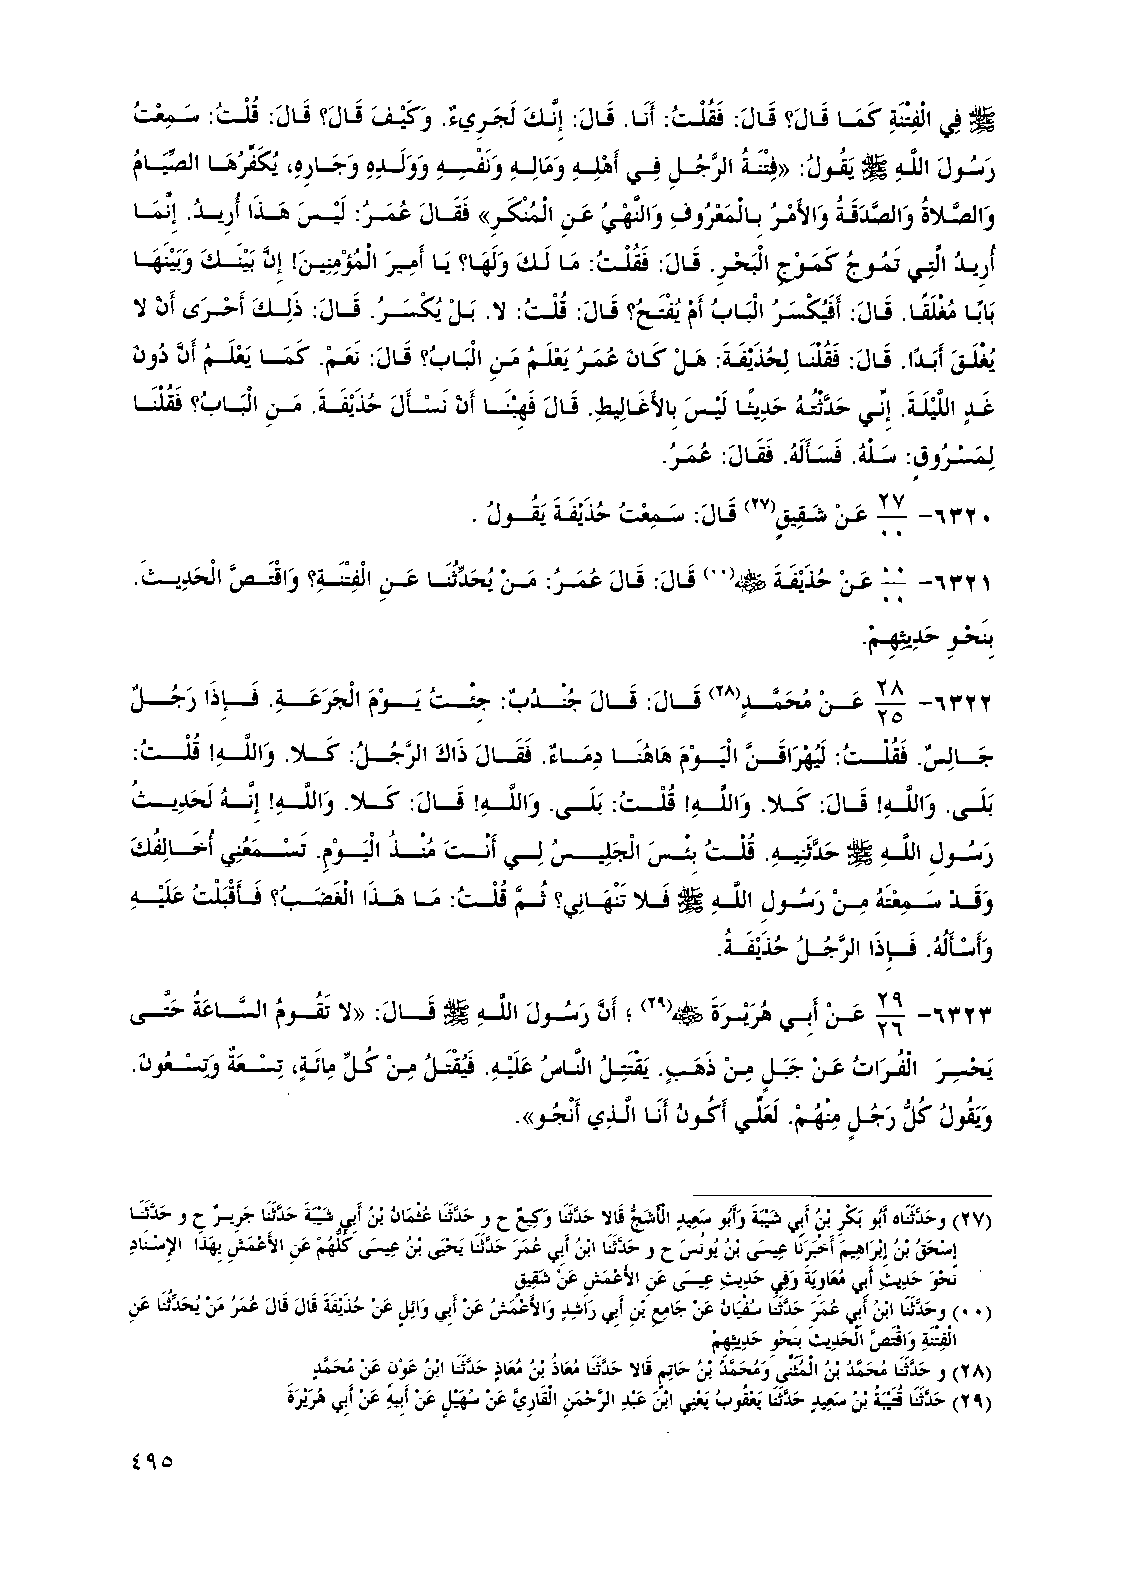 ﷺ فِي الْفِتْنَةِ كَمَا قَالَ؟ قَالَ: فَقُلْتُ: أَنَا. قَالَ: إِنَّكَ لَجَرِيءٌ. وَكَيْفَ قَالَ؟ قَالَ: قُلْتُ: سَمِعْتُ
رَسُولَ اللَّهِ ﷺ يَقُولُ: «فِتْنَةُ الرَّجُلِ فِي أَهْلِهِ وَمَالِهِ وَنَفْسِهِ وَوَلَدِهِ وَجَارِهِ، يُكَفِّرُهَا الصِّيَامُ
وَالصَّلَاةُ وَالصَّدَقَةُ وَالأَمْرُ بِالْمَعْرُوفِ وَالنَّهْيُ عَنِ الْمُنْكَرِ» فَقَالَ عُمَرُ: لَيْسَ هَذَا أُرِيدُ. إِنَّمَا
أُرِيدُ الَّتِي تَمُوجُ كَمَوْجِ الْبَحْرِ. قَالَ: فَقُلْتُ: مَا لَكَ وَلَهَا؟ يَا أَمِيرَ الْمُؤْمِنِينَ! إِنَّ بَيْنَكَ وَبَيْنَهَا
بَابًا مُغْلَقًا. قَالَ: أَفَيُكْسَرُ الْبَابُ أَمْ يُفْتَحُ؟ قَالَ: قُلْتُ: لا. بَلْ يُكْسَرُ. قَالَ: ذَلِكَ أَحْرَى أَنْ لا
يُغْلَقَ أَبَدًا. قَالَ: فَقُلْنَا لِحُذَيْفَةَ: هَلْ كَانَ عُمَرُ يَعْلَمُ مَنِ الْبَابُ؟ قَالَ: نَعَمْ. كَمَا يَعْلَمُ أَنَّ دُونَ
غَدٍ اللَّيْلَةَ. إِنِّي حَدَّثْتُهُ حَدِيثًا لَيْسَ بِالأَغَالِيطِ. قَالَ فَهِبْنَا أَنْ نَسْأَلَ حُذَيْفَةَ. مَنِ الْبَابُ؟ فَقُلْنَا
لِمَسْرُوقٍ: سَلْهُ. فَسَأَلَهُ. فَقَالَ: عُمَرُ.
٦٣٢٠- ٢٧/٠٠ عَنْ شَقِيقٍ(٢٧) قَالَ: سَمِعْتُ حُذَيْفَةَ يَقُولُ .
٦٣٢١- ٠٠/٠٠ عَنْ حُذَيْفَةَ ﷺ(٠٠) قَالَ: قَالَ عُمَرُ: مَنْ يُحَدِّثُنَا عَنِ الْفِتْنَةِ؟ وَاقْتَصَّ الْحَدِيثَ.
بِنَحْوِ حَدِيثِهِمْ.
٦٣٢٢- ٢٨/٢٥ عَنْ مُحَمَّدٍ(٢٨) قَالَ: قَالَ جُنْدُبٌ: جِئْتُ يَوْمَ الْجَرَعَةِ. فَإِذَا رَجُلٌ
جَالِسٌ. فَقُلْتُ: لَيُهْرَاقَنَّ الْيَوْمَ هَاهُنَا دِمَاءٌ. فَقَالَ ذَاكَ الرَّجُلُ: كَلا. وَاللَّهِ! قُلْتُ:
بَلَى. وَاللَّهِ! قَالَ: كَلا. وَاللَّهِ! قُلْتُ: بَلَى. وَاللَّهِ! قَالَ: كَلا. وَاللَّهِ! إِنَّهُ لَحَدِيثُ
رَسُولِ اللَّهِ ﷺ حَدَّثَنِيهِ. قُلْتُ بِئْسَ الْجَلِيسُ لِي أَنْتَ مُنْذُ الْيَوْمِ. تَسْمَعُنِي أُخَالِفُكَ
وَقَدْ سَمِعْتَهُ مِنْ رَسُولِ اللَّهِ ﷺ فَلا تَنْهَانِي؟ ثُمَّ قُلْتُ: مَا هَذَا الْغَضَبُ؟ فَأَقْبَلْتُ عَلَيْهِ
وَأَسْأَلُهُ. فَإِذَا الرَّجُلُ حُذَيْفَةُ.
٦٣٢٣- ٢٩/٢٦ عَنْ أَبِي هُرَيْرَةَ ﷺ(٢٩) ؛ أَنَّ رَسُولَ اللَّهِ ﷺ قَالَ: «لا تَقُومُ السَّاعَةُ حَتَّى
يَحْسِرَ الْفُرَاتُ عَنْ جَبَلٍ مِنْ ذَهَبٍ. يَقْتَتِلُ النَّاسُ عَلَيْهِ. فَيُقْتَلُ مِنْ كُلِّ مِائَةٍ، تِسْعَةٌ وَتِسْعُونَ.
وَيَقُولُ كُلُّ رَجُلٍ مِنْهُمْ. لَعَلِّي أَكُونُ أَنَا الَّذِي أَنْجُو».
(٢٧) وحَدَّثَنَاه أَبُو بَكْرِ بْنُ أَبِي شَيْبَةَ وَأَبُو سَعِيدٍ الْأَشَجُّ قَالا حَدَّثَنَا وَكِيعٌ ح و حَدَّثَنَا عُثْمَانُ بْنُ أَبِي شَيْبَةَ حَدَّثَنَا جَرِيرٌ ح و حَدَّثَنَا
إِسْحَقُ بْنُ إِبْرَاهِيمَ أَخْبَرَنَا عِيسَى بْنُ يُونُسَ ح و حَدَّثَنَا ابْنُ أَبِي عُمَرَ حَدَّثَنَا يَحْيَى بْنُ عِيسَى كُلُّهُمْ عَنِ الأَعْمَشِ بِهَذَا الإِسْنَادِ
نَحْوَ حَدِيثِ أَبِي مُعَاوِيَةَ وَفِي حَدِيثِ عِيسَى عَنِ الأَعْمَشِ عَنْ شَقِيقٍ
(٠٠) وحَدَّثَنَا ابْنُ أَبِي عُمَرَ حَدَّثَنَا سُفْيَانُ عَنْ جَامِعِ بْنِ أَبِي رَاشِدٍ وَالأَعْمَشُ عَنْ أَبِي وَائِلٍ عَنْ حُذَيْفَةَ قَالَ قَالَ عُمَرُ مَنْ يُحَدِّثُنَا عَنِ
الْفِتْنَةِ وَاقْتَصَّ الْحَدِيثَ بِنَحْوِ حَدِيثِهِمْ
(٢٨) و حَدَّثَنَا مُحَمَّدُ بْنُ الْمُثَنَّى وَمُحَمَّدُ بْنُ حَاتِمٍ قَالا حَدَّثَنَا مُعَاذُ بْنُ مُعَاذٍ حَدَّثَنَا ابْنُ عَوْنٍ عَنْ مُحَمَّدٍ
(٢٩) حَدَّثَنَا قُتَيْبَةُ بْنُ سَعِيدٍ حَدَّثَنَا يَعْقُوبُ يَعْنِي ابْنَ عَبْدِ الرَّحْمَنِ الْقَارِيَّ عَنْ سُهَيْلٍ عَنْ أَبِيهِ عَنْ أَبِي هُرَيْرَةَ
٤٩٥